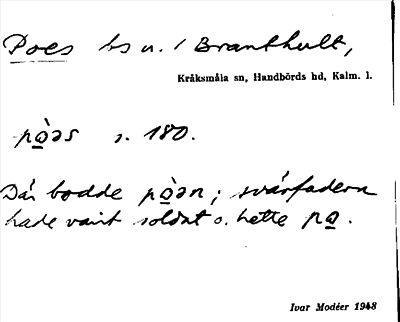 Poes bs u. / Branthult,
Kråksmåla sn, Handbörds hd, Kalm. l.
pò̠əs s. 180.
Där bodde pò̠ən; svärfadern
hade varit soldat o. hette po̠.
Ivar Modéer 1948